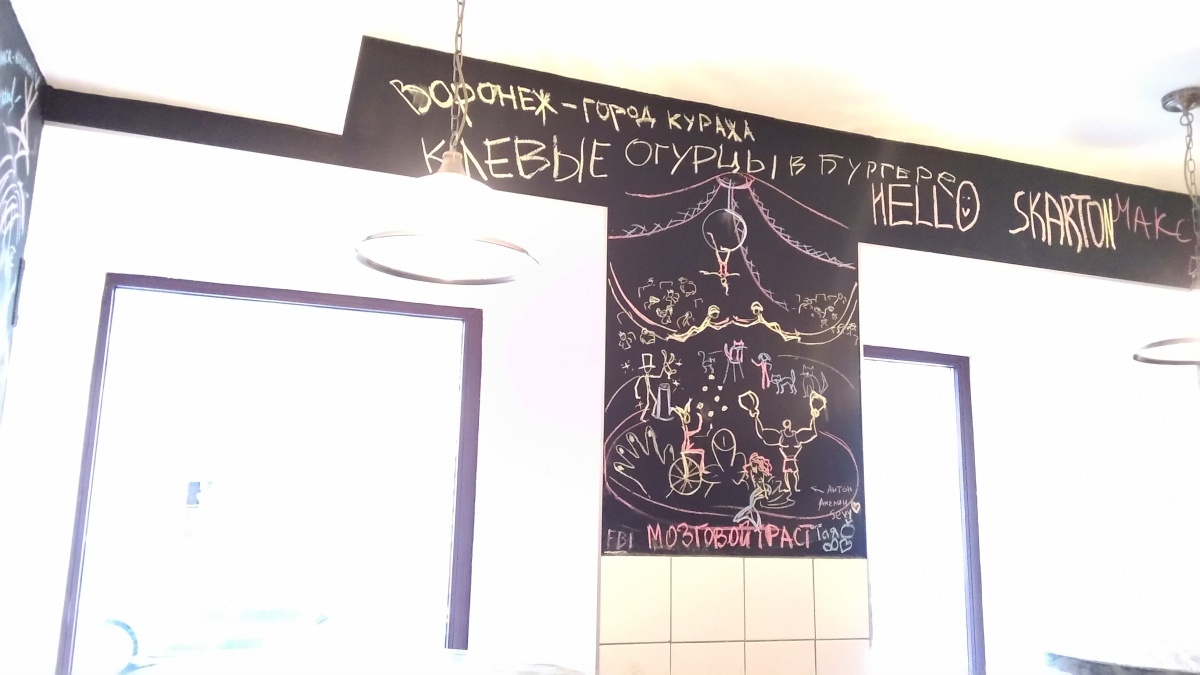 ВОРОНЕЖ – ГОРОД КУРАЖА
КЛЕВЫЕ ОГУРЦЫ В БУРГЕРЕ
HELLO SKARTON МАКС
АНТОН
Sexy
FBI МОЗГОВОЙ ТРАСТ